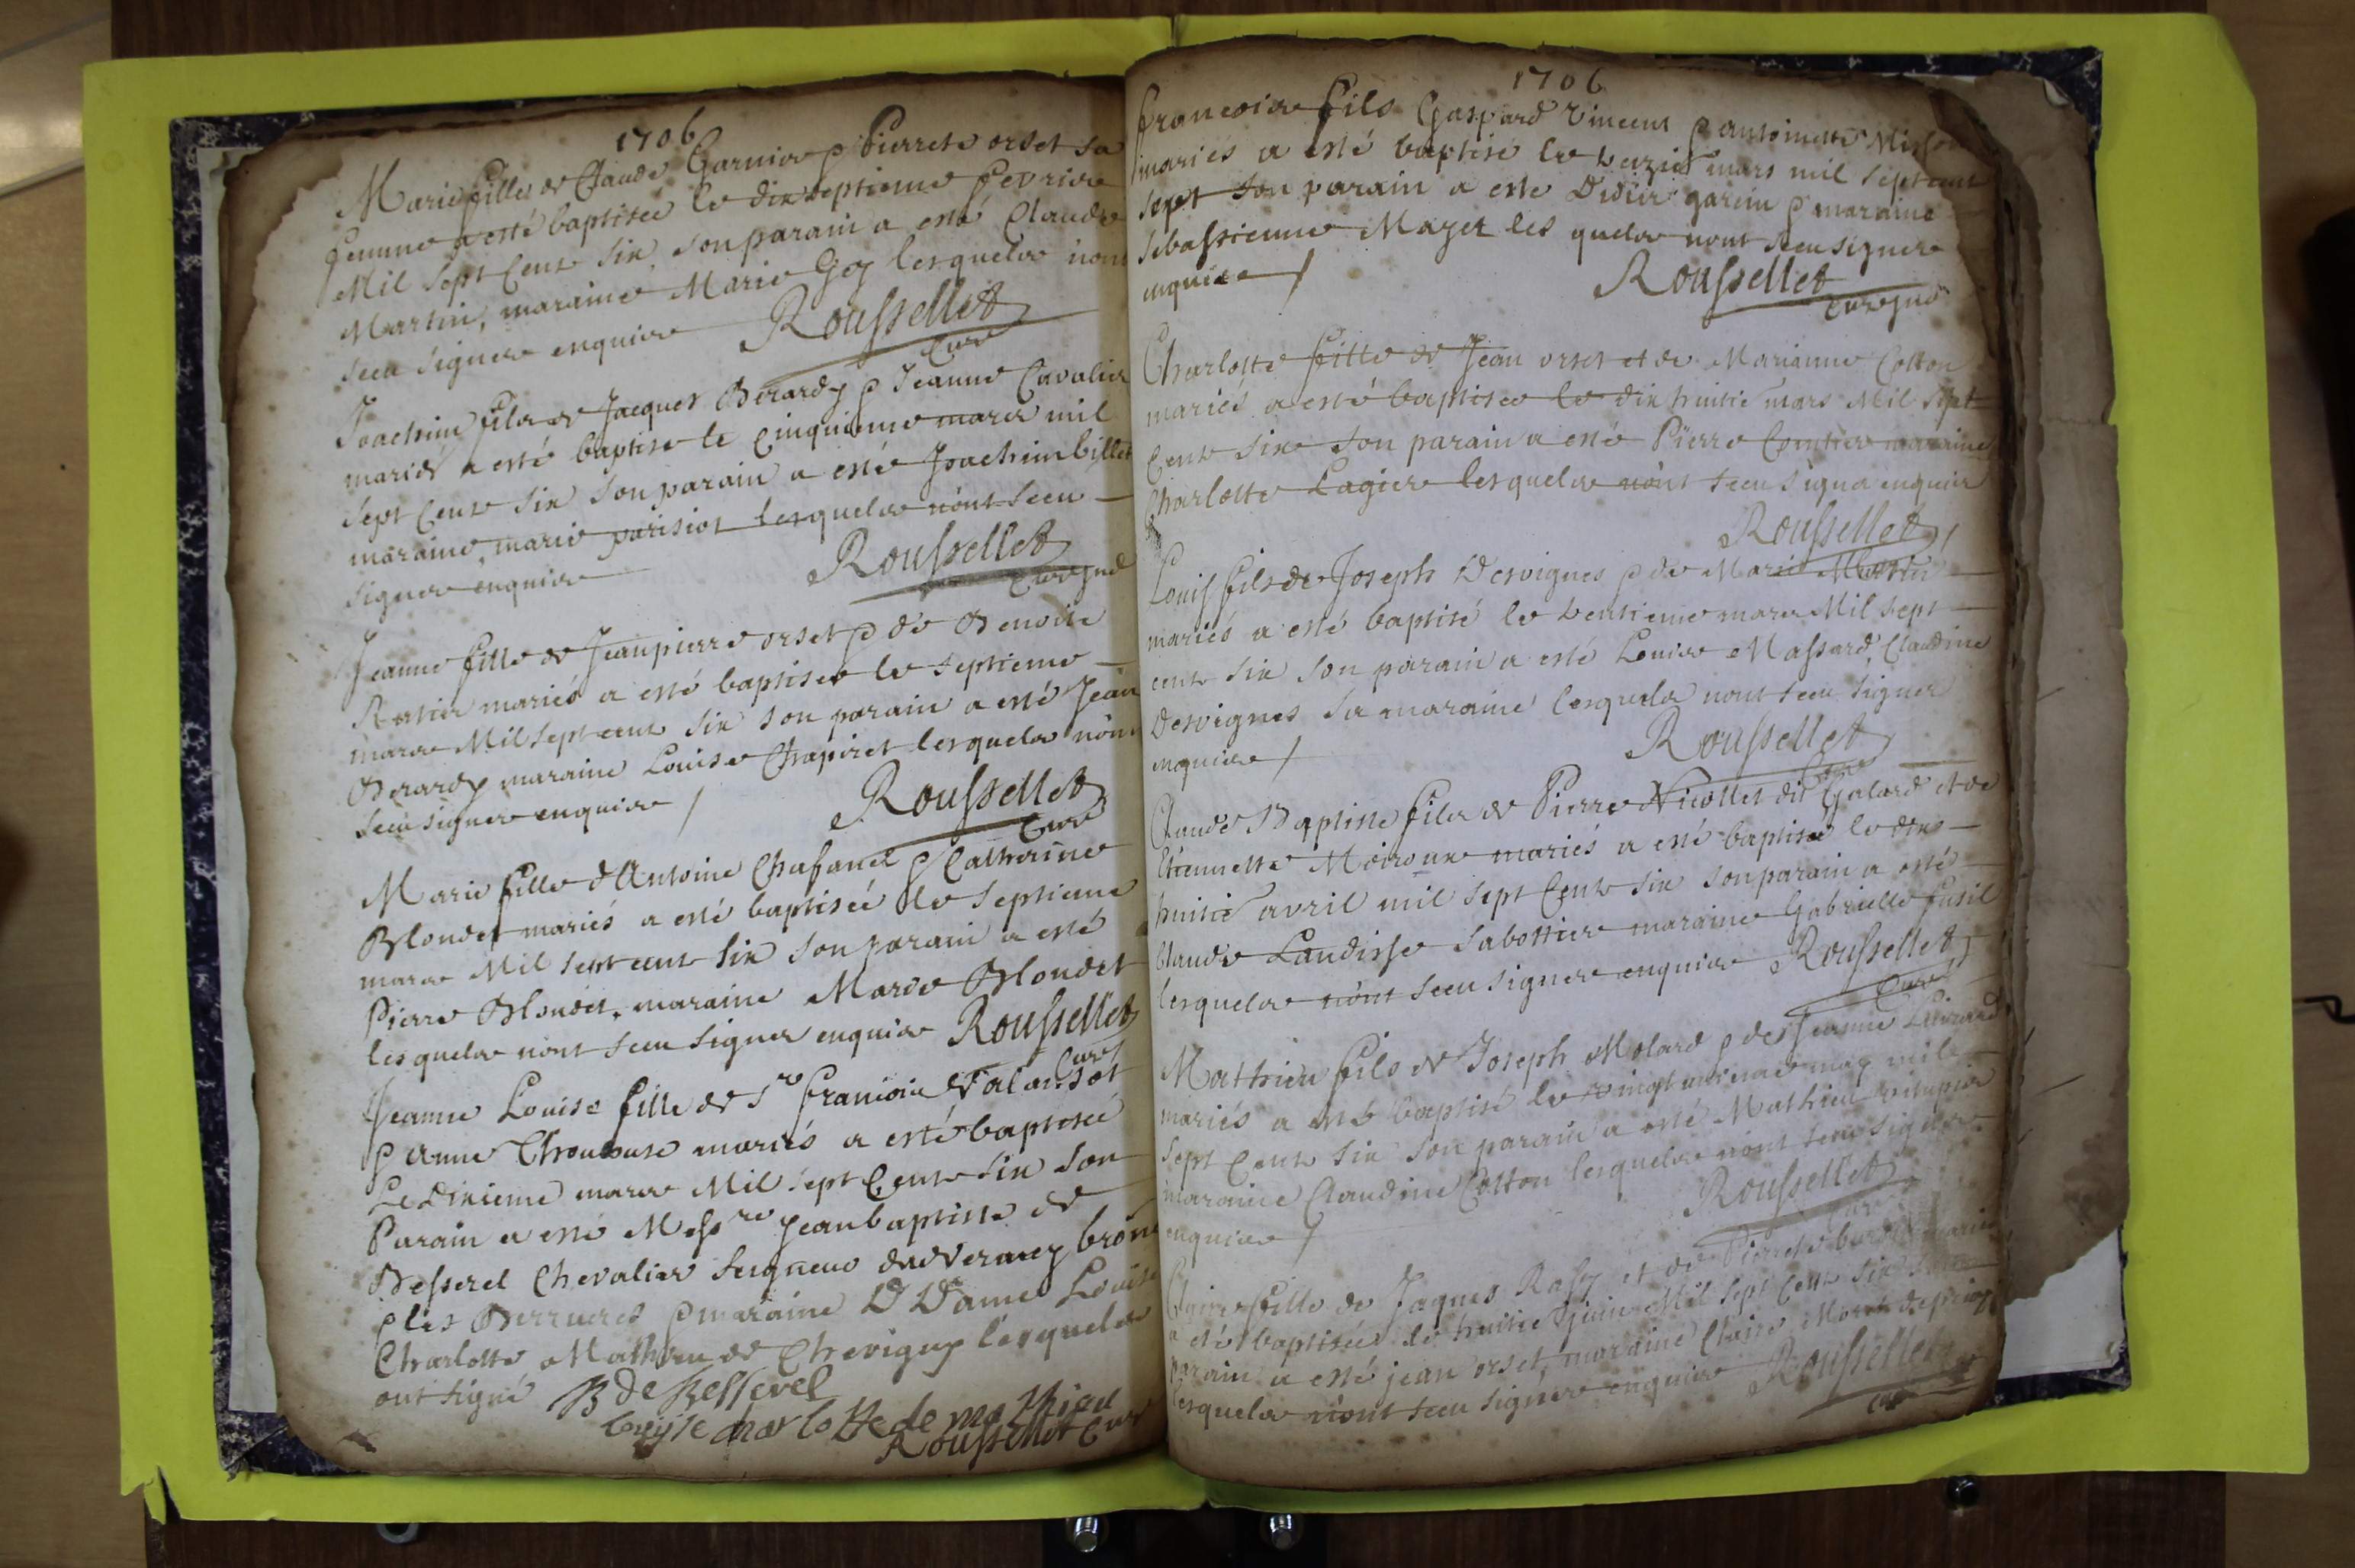 1706
Marie fille de Claude Garnier & Pierrete orset sa
femme a esté baptisée le dixseptieme fevrier
Mil sept Cent six son parain a esté Claude
Martin, maraine Marie Goy lesquels nont
sceu signer enquis Rousselet
Curé
Joachim fils de Jacques Berardy & Jeanne Cavalier
mariés a esté baptise le cinquieme mars mil
sept Cent six son parain a esté Joachim billet
maraine marie parisiot lesquels nont sceu
signer enquis Rousselet
Jeanne fille de Jeanpierre orset & de Benoite
mariés a esté baptisee le septieme
mars Mil sept cent six son parain a esté Jean
Berardy maraine Louise Chapiret lesquels nont
sceu signer enquis / Rousselet
Curé
Marie fille d'Antoine Chafanel & Catherine
Blondet mariés a esté baptisée le septieme
mars Mil sept cent six son parain a esté
Pierre Blondet. maraine Marie Blondet
lesquels nont sceu signer enquis Rousselet
Curé
Jeanne Louise fille de Sr francois
& Anne mariés a esté baptisée
Le dixieme mars Mil sept Cent six son
Parain a esté Messre Jeanbaptiste de
Besserel Chevalier seigneur de
& les & maraine D Dame Louise
Charlotte Mathieu de Chevigny lesquels
ont signé B de Besserel
louyse charlotte de mathieu
Rousselet Curé
1706
francois fils Gaspard Vincent & antoinette
mariés a esté baptisé le mars mil sept cent
son parain a este Didier garin & maraine
sebastienne Mayet les quels nont sceu signer
enquis / Rousselet
Charlotte fille de Jean orset et de Marianne Cotton
mariés a esté baptisee le dix huitie mars Mil sept
Cent six son parain a esté Pierre maraine
Charlotte Lagier lesquels nont sceu signer enquis
Rousselet
Louis fils de Joseph Desvignes & de Marie Martin
mariés a esté baptisé le mars Mil sept
cent six son parain a esté Louis Massard, Claudine
Desvignes sa maraine lesquels nont sceu signer
enquis / Rousselet
Curé
Claude Baptiste fils de Pierre Nicollet dit Galard et de
Etiennette Moiroux mariés a esté baptisé le dix
huitie avril mil sept Cent six son parain a esté
Claude Landisse sabottier maraine Gabrielle fusil
lesquels nont sceu signer enquis Rousselet
Curé
Mathieu fils de Joseph Molard & de Jeanne
mariés a esté baptisé le may mil
sept Cent six son parain a esté Mathieu
maraine Claudine Cotton lesquels nont sceu signer
enquis / Rousselet
Curé
fille de Jaques et de Pierrete mariés
a esté baptisée le huitie Mil sept Cent six son
parain a esté jean orset, maraine Claire
lesquels nont sceu signer enquis Rousselet
Curé